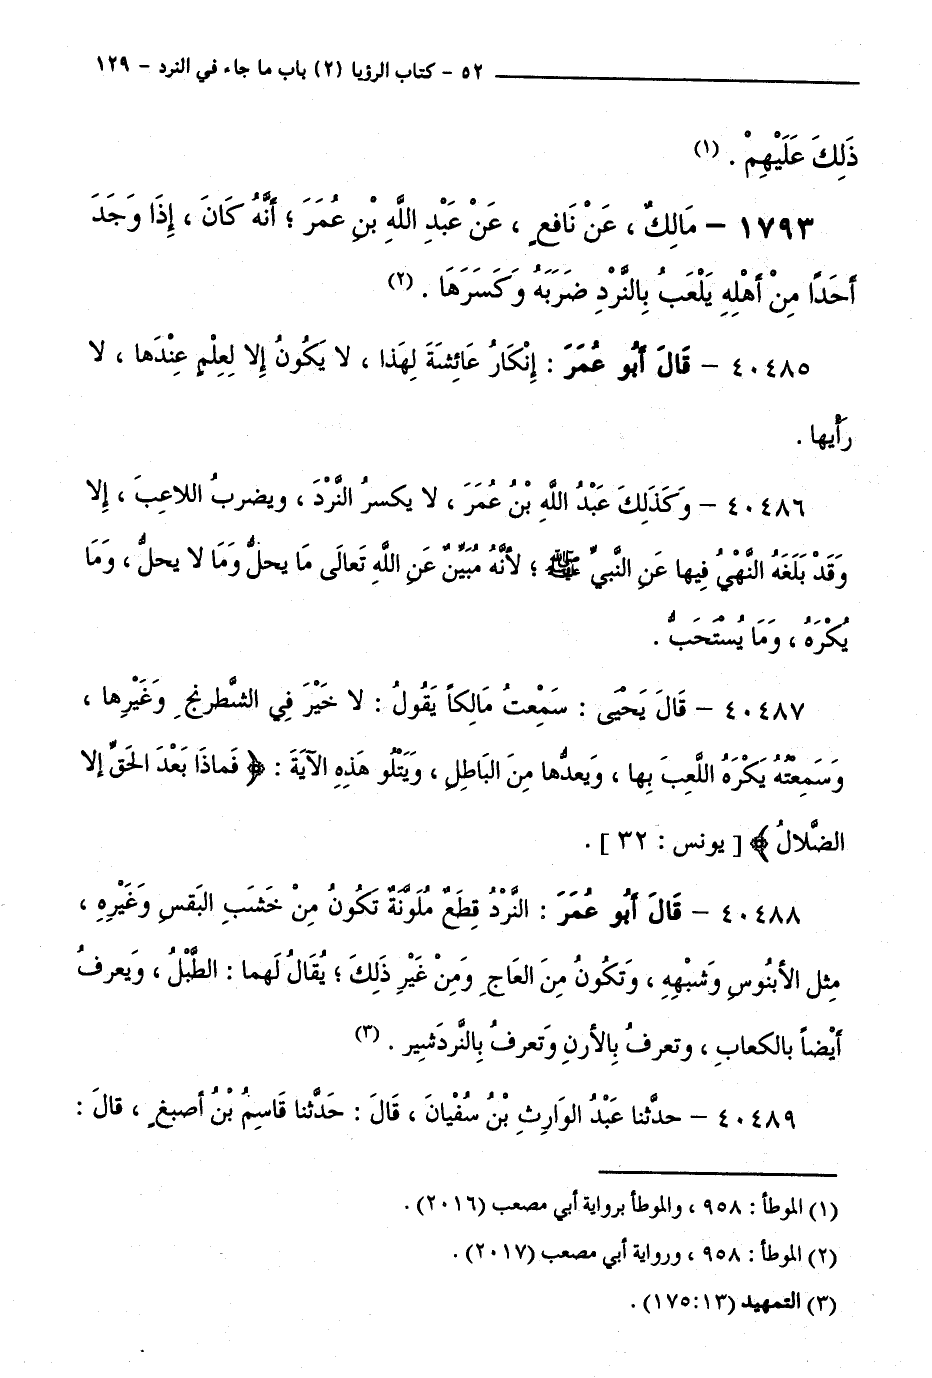 ٥٢ - كتاب الرؤيا (٢) باب ما جاء في النرد - ١٢٩
ذَلِكَ عَلَيْهِمْ . (١)
١٧٩٣ - مَالِكٌ ، عَنْ نَافعٍ ، عَنْ عَبْدِ اللَّهِ بْنِ عُمَرَ ؛ أَنَّهُ كَانَ ، إِذَا وَجَدَ
أَحَدًا مِنْ أَهْلِهِ يَلْعَبُ بِالنَّرْدِ ضَرَبَهُ وَكَسَرَهَا . (٢)
٤٠٤٨٥ - قَالَ أَبُو عُمَرَ : إِنْكَارُ عَائِشَةَ لِهَذا ، لا يَكُونُ إِلا لِعِلْمٍ عِنْدَها ، لا
رَأْيها .
٤٠٤٨٦ - وَكَذَلِكَ عَبْدُ اللَّهِ بْنُ عُمَرَ ، لا يكسرُ النَّرْدَ ، ويضربُ اللاعِبَ ، إِلا
وَقَدْ بَلَغَهُ النَّهْيُ فِيها عَنِ النَّبِيِّ ﷺ ؛ لأَنَّهُ مُبَيِّنٌ عَنِ اللَّهِ تَعالَى مَا يحلُّ وَمَا لا يحلُّ ، وَمَا
يُكْرَهُ ، وَمَا يُسْتَحَبُّ .
٤٠٤٨٧ - قَالَ يَحْيَى : سَمِعْتُ مَالِكاً يَقُولُ : لا خَيْرَ فِي الشَّطرنجِ وَغَيْرِها ،
وَسَمِعْتُهُ يَكْرَهُ اللَّعِبَ بِها ، وَيَعدُّها مِنَ البَاطِلِ ، وَيَتْلُو هَذِهِ الآيَةَ : ﴿ فَماذَا بَعْدَ الحَقِّ إِلا
الضَّلالُ ﴾ [ يونس : ٣٢ ] .
٤٠٤٨٨ - قَالَ أَبُو عُمَرَ : النَّرْدُ قِطَعٌ مُلَوَّنَةٌ تَكُونُ مِنْ خَشَبِ البَقسِ وَغَيْرِهِ ،
مِثل الأَبنُوسِ وَشبْهِهِ ، وَتَكُونُ مِنَ العَاجِ وَمِنْ غَيْرِ ذَلِكَ ؛ يُقَالُ لَهما : الطَّبْلُ ، وَيَعرفُ
أَيْضاً بالكعابِ ، وتعرفُ بِالأرنِ وَتَعرفُ بِالنَّردَشير . (٣)
٤٠٤٨٩ - حدَّثنا عَبْدُ الوَارِثِ بْنُ سُفْيانَ ، قَالَ : حَدَّثنا قَاسِمُ بْنُ أصبغٍ ، قالَ :
(١) الموطأ : ٩٥٨ ، والموطأ برواية أبي مصعب (٢٠١٦) .
(٢) الموطأ : ٩٥٨ ، ورواية أبي مصعب (٢٠١٧) .
(٣) التمهيد (١٣:١٧٥) .